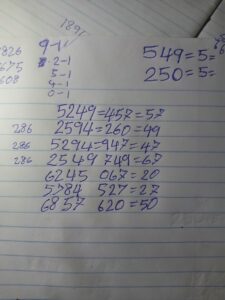 1891
826
675
608
9-1
2-1
5-1
4-1
0-1
549=5=
250=5=
5249=457=57
286 2594=260=49
286 5294=947=47
286 2549 749=67
6245 067=20
5784 527=27
6857 620=50